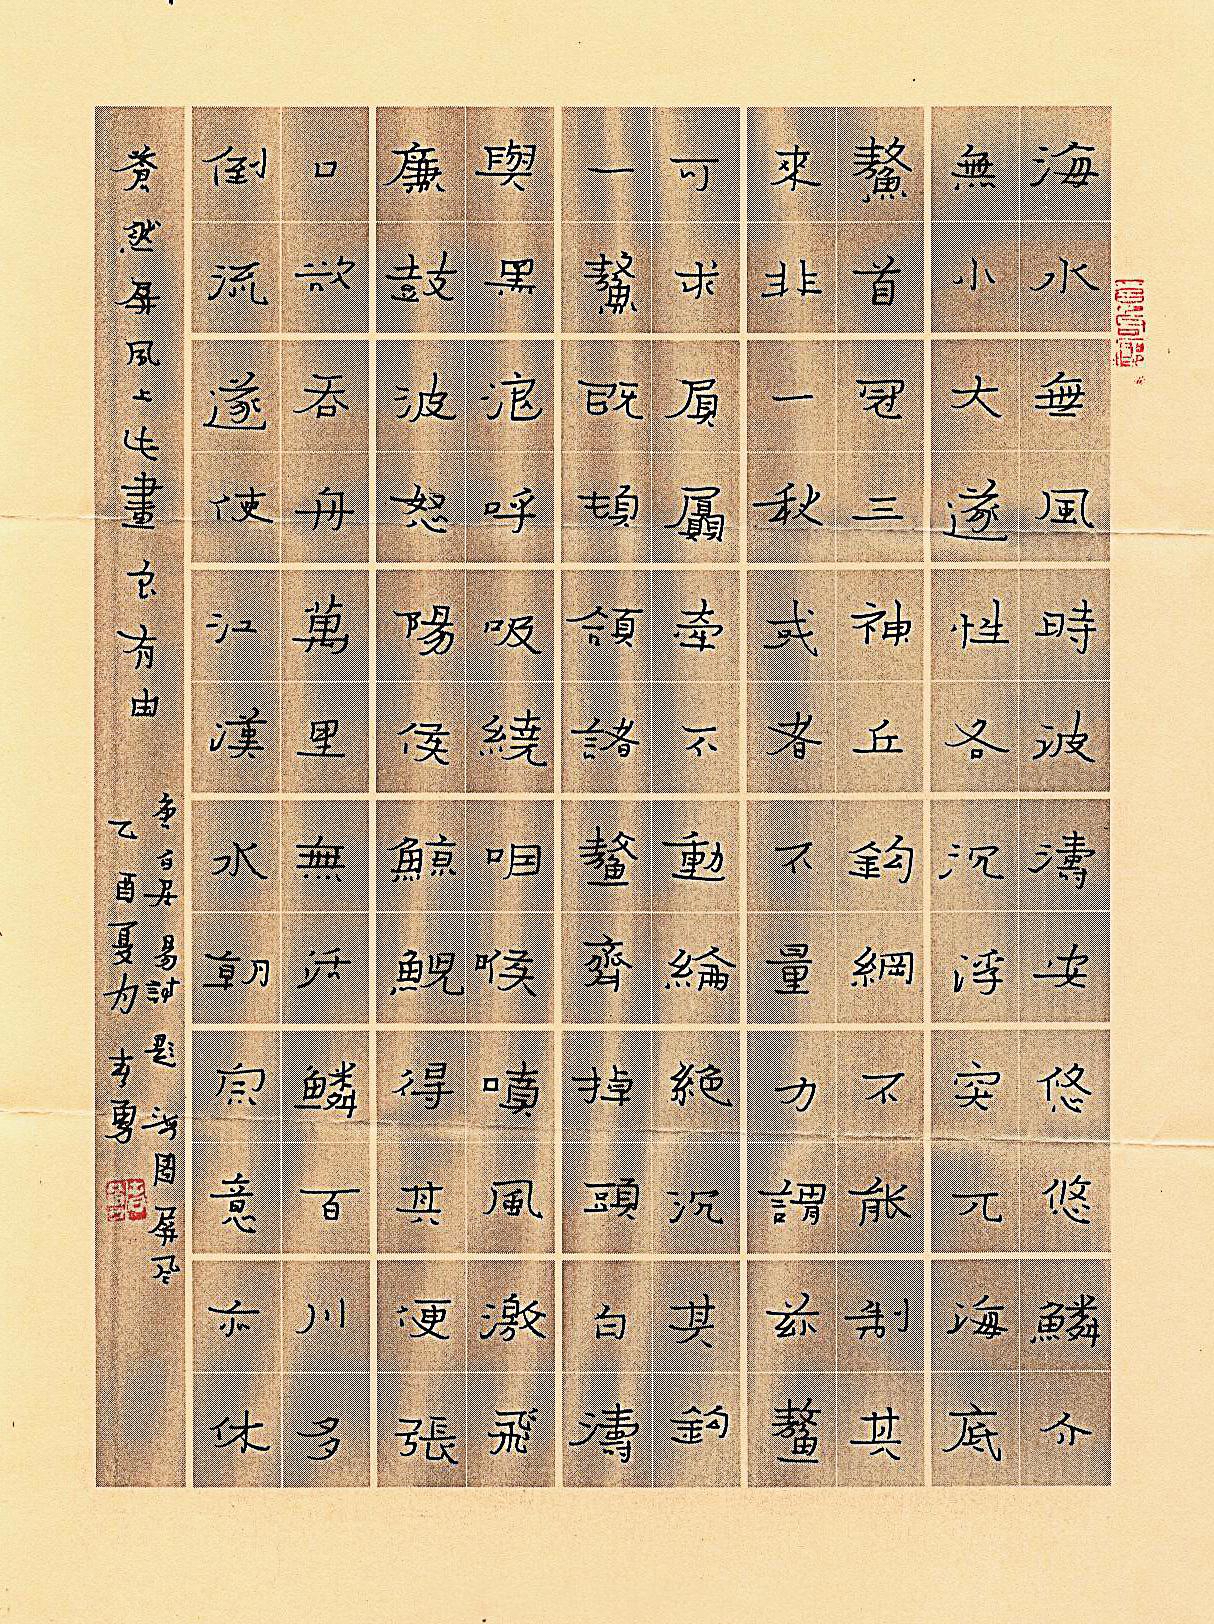 海水無風時波濤安悠悠鱗介
無小大遂性各沉浮突兀海底
鼇首冠三神丘鈎網不能制其
來非一秋或者不量力謂茲鼇
可求屓贔牽不動綸絕沉其鈎
一鼇既頓頷諸鼇齊掉頭白濤
與黑浪呼吸繞咽喉噴風激飛
廉鼓波怒陽侯鯨鯢得其便張
口欲吞舟萬里無活鱗百川多
倒流遂使江漢水朝宗意亦休
蒼然屏風上此畫良有由
唐白居易詩題海圖屏風
乙酉夏力 李勇